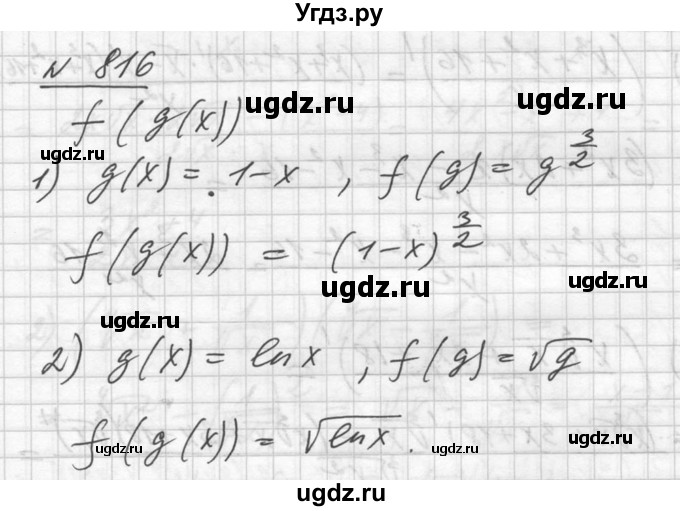 Угдз.ру
№ 816
f(g(x))
ugdz.ru
ugdz.ru
ugdz.ru
1) g(x) = 1-x , f(g) = g^{3/2}
f(g(x)) = (1-x)^{3/2}
ugdz.ru
ugdz.ru
2) g(x) = ln x , f(g) = √g
f(g(x)) = √(ln x).
ugdz.ru
ugdz.ru
ugdz.ru